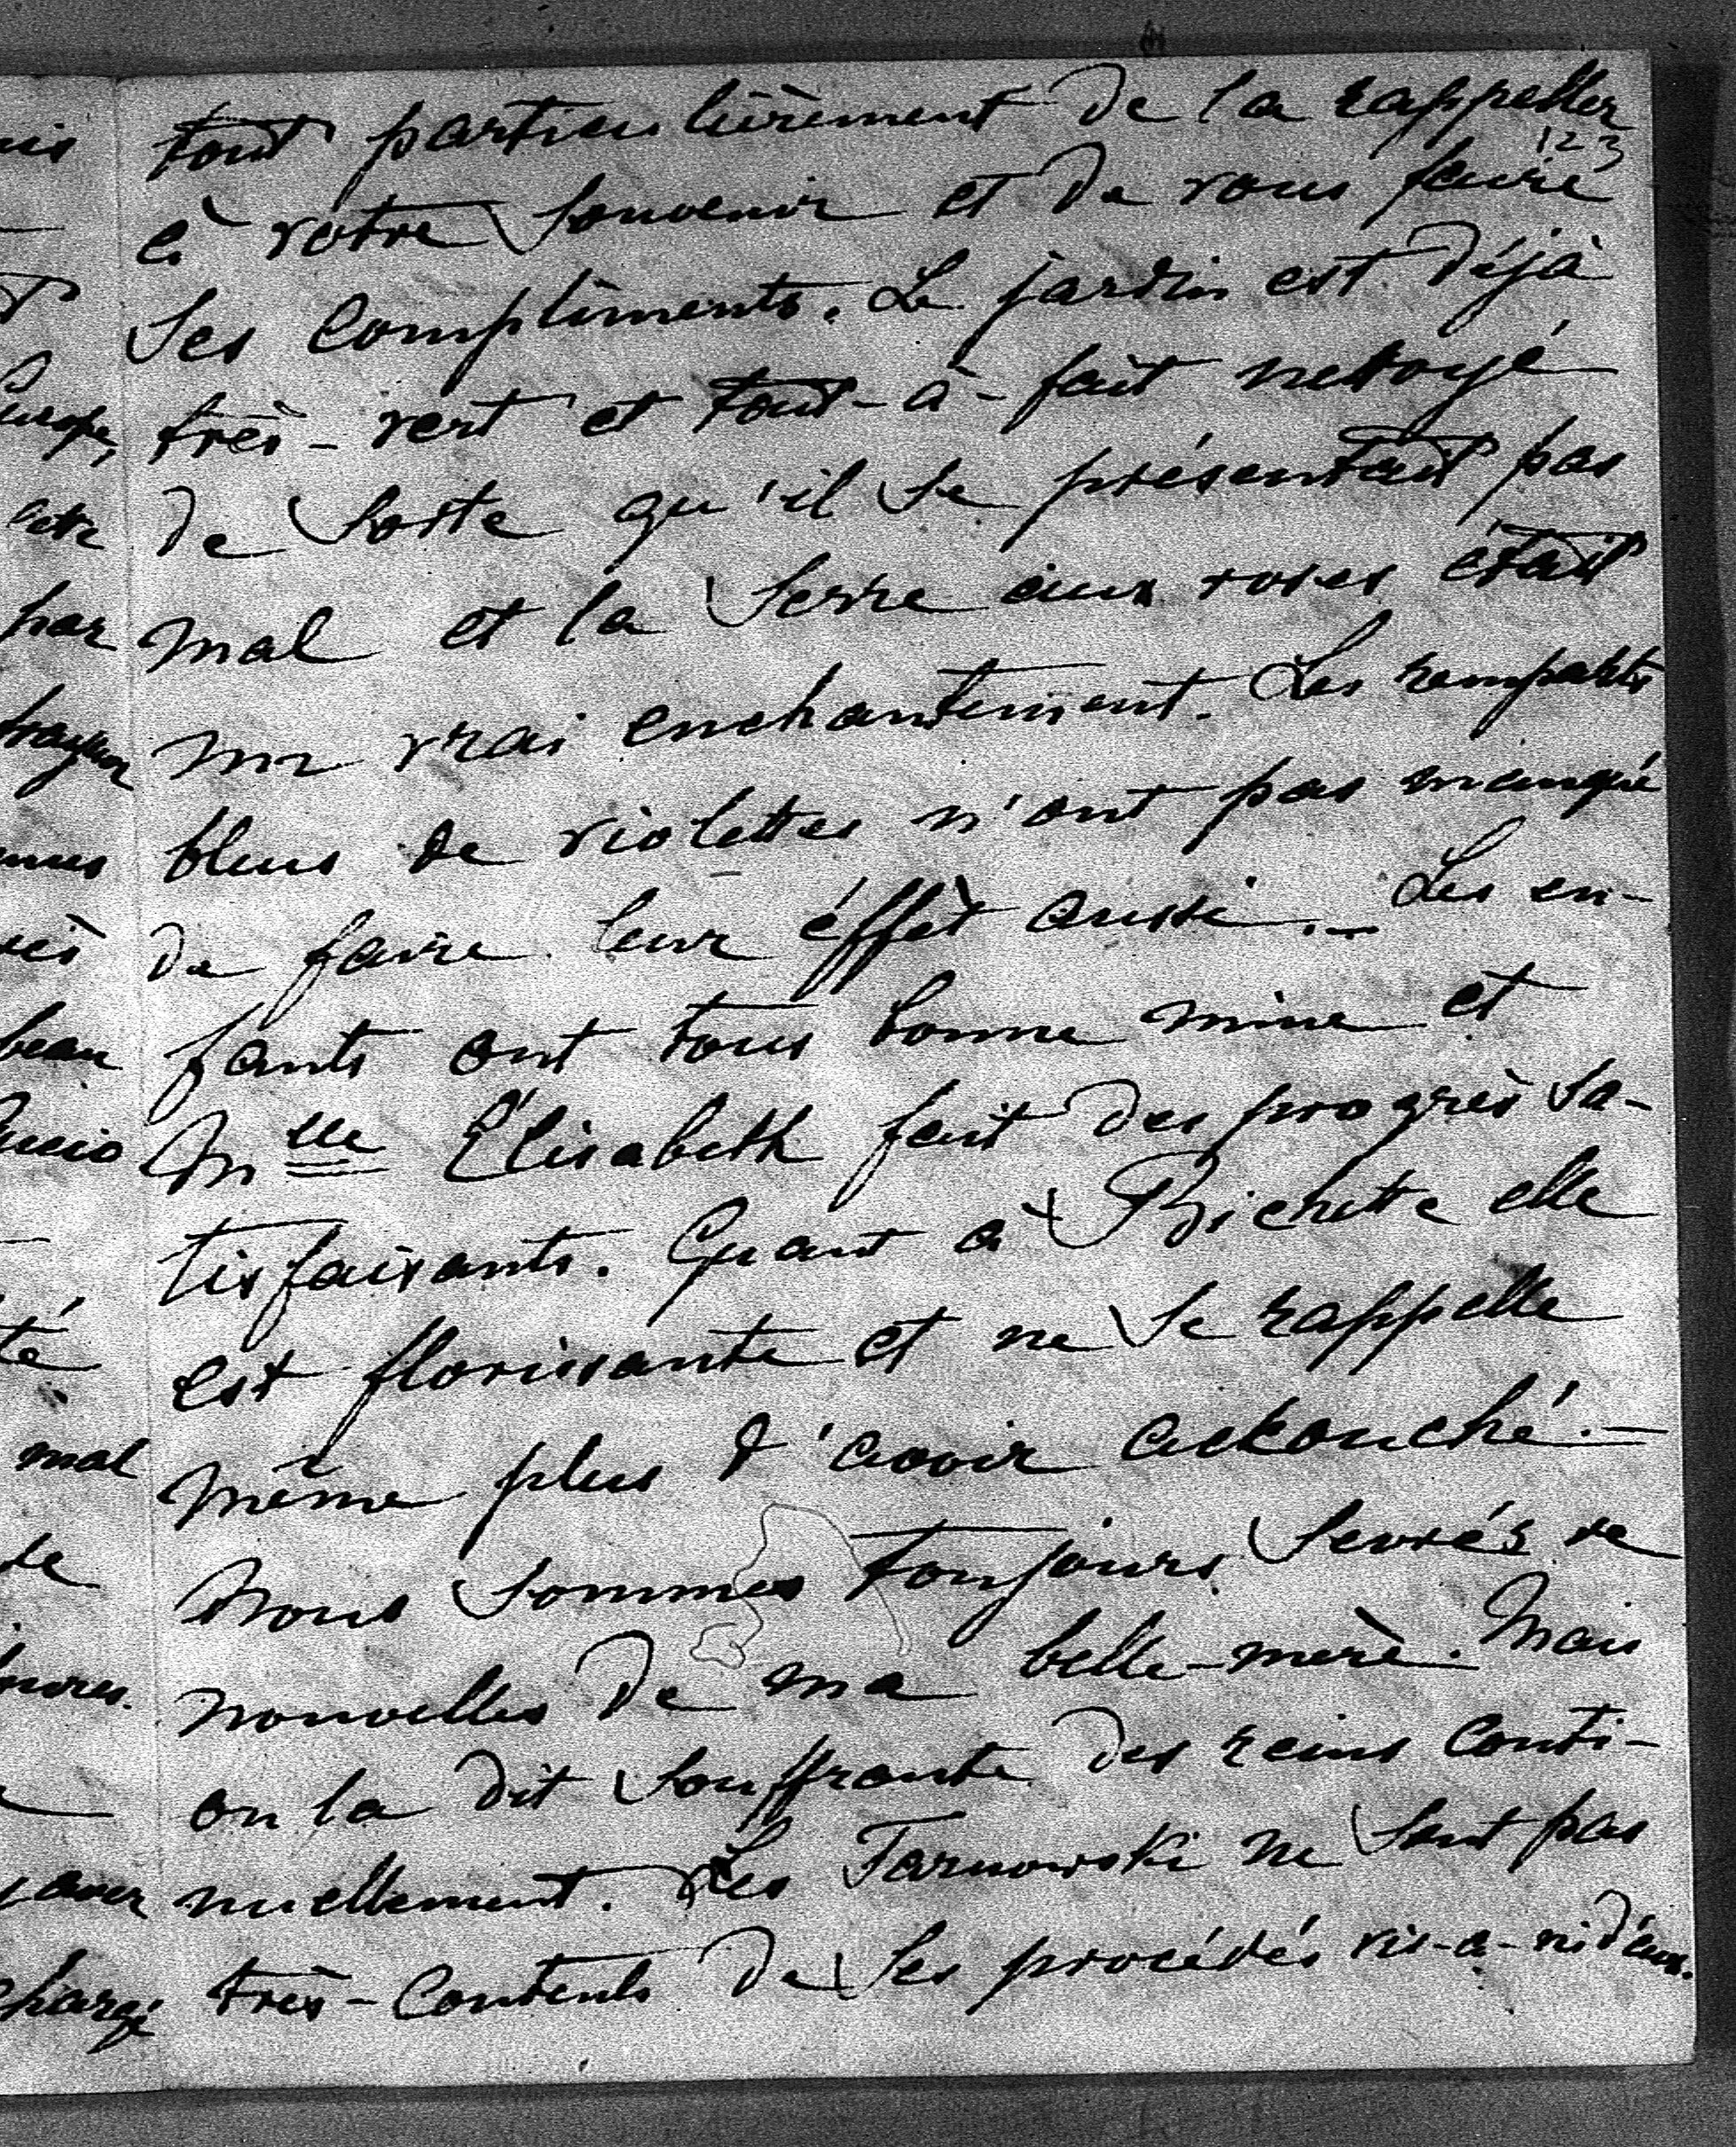 tout particulièrement de la rappeller
123
à votre souvenir et de vous faire
ses compliments. Le jardin est déjà
très-vert et tout-à-fait netoyé
de sorte qu'il se présentait pas
mal et la serre aux roses était
un vrai enchantement. Les remparts
bleus de violettes n'ont pas manqué
de faire leur éffèt aussi._ Les en-
fants ont tous bonne mine et
Mlle Élisabeth fait des progrès sa-
tisfaisants. Quant à Bichette elle
est florissante et ne se rappelle
même plus d'avoir ackouché._
Nous sommes toujours sevrés de
nouvelles de ma belle-merè. Mais
on la dit souffrante des reins conti-
nuellement. Les Tarnowski ne sont pas
très-contents de ses procédés vis-a-vis d'eux.
par
beau
té
mal
de
chargé